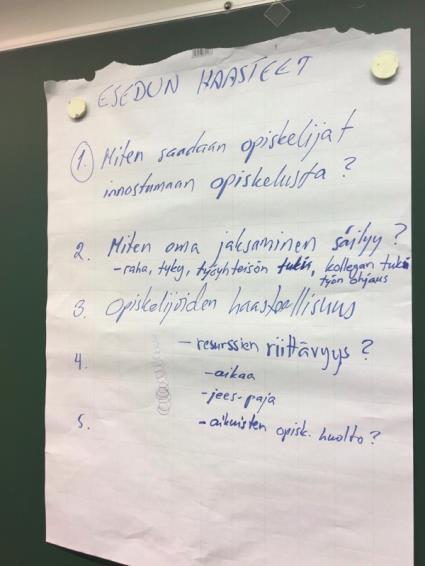 ESEDUN HAASTEET
1. Miten saadaan opiskelijat
innostumaan opiskelusta?
2. Miten oma jaksaminen säilyy?
- raha, tyky, työyhteisön tuki, kollegan tuki
työn ohjaus
3. Opiskelijoiden haasteellisuus
- resurssien riittävyys?
4.
- aikaa
- jees-paja
5.
- aikuisten opisk. huolto?